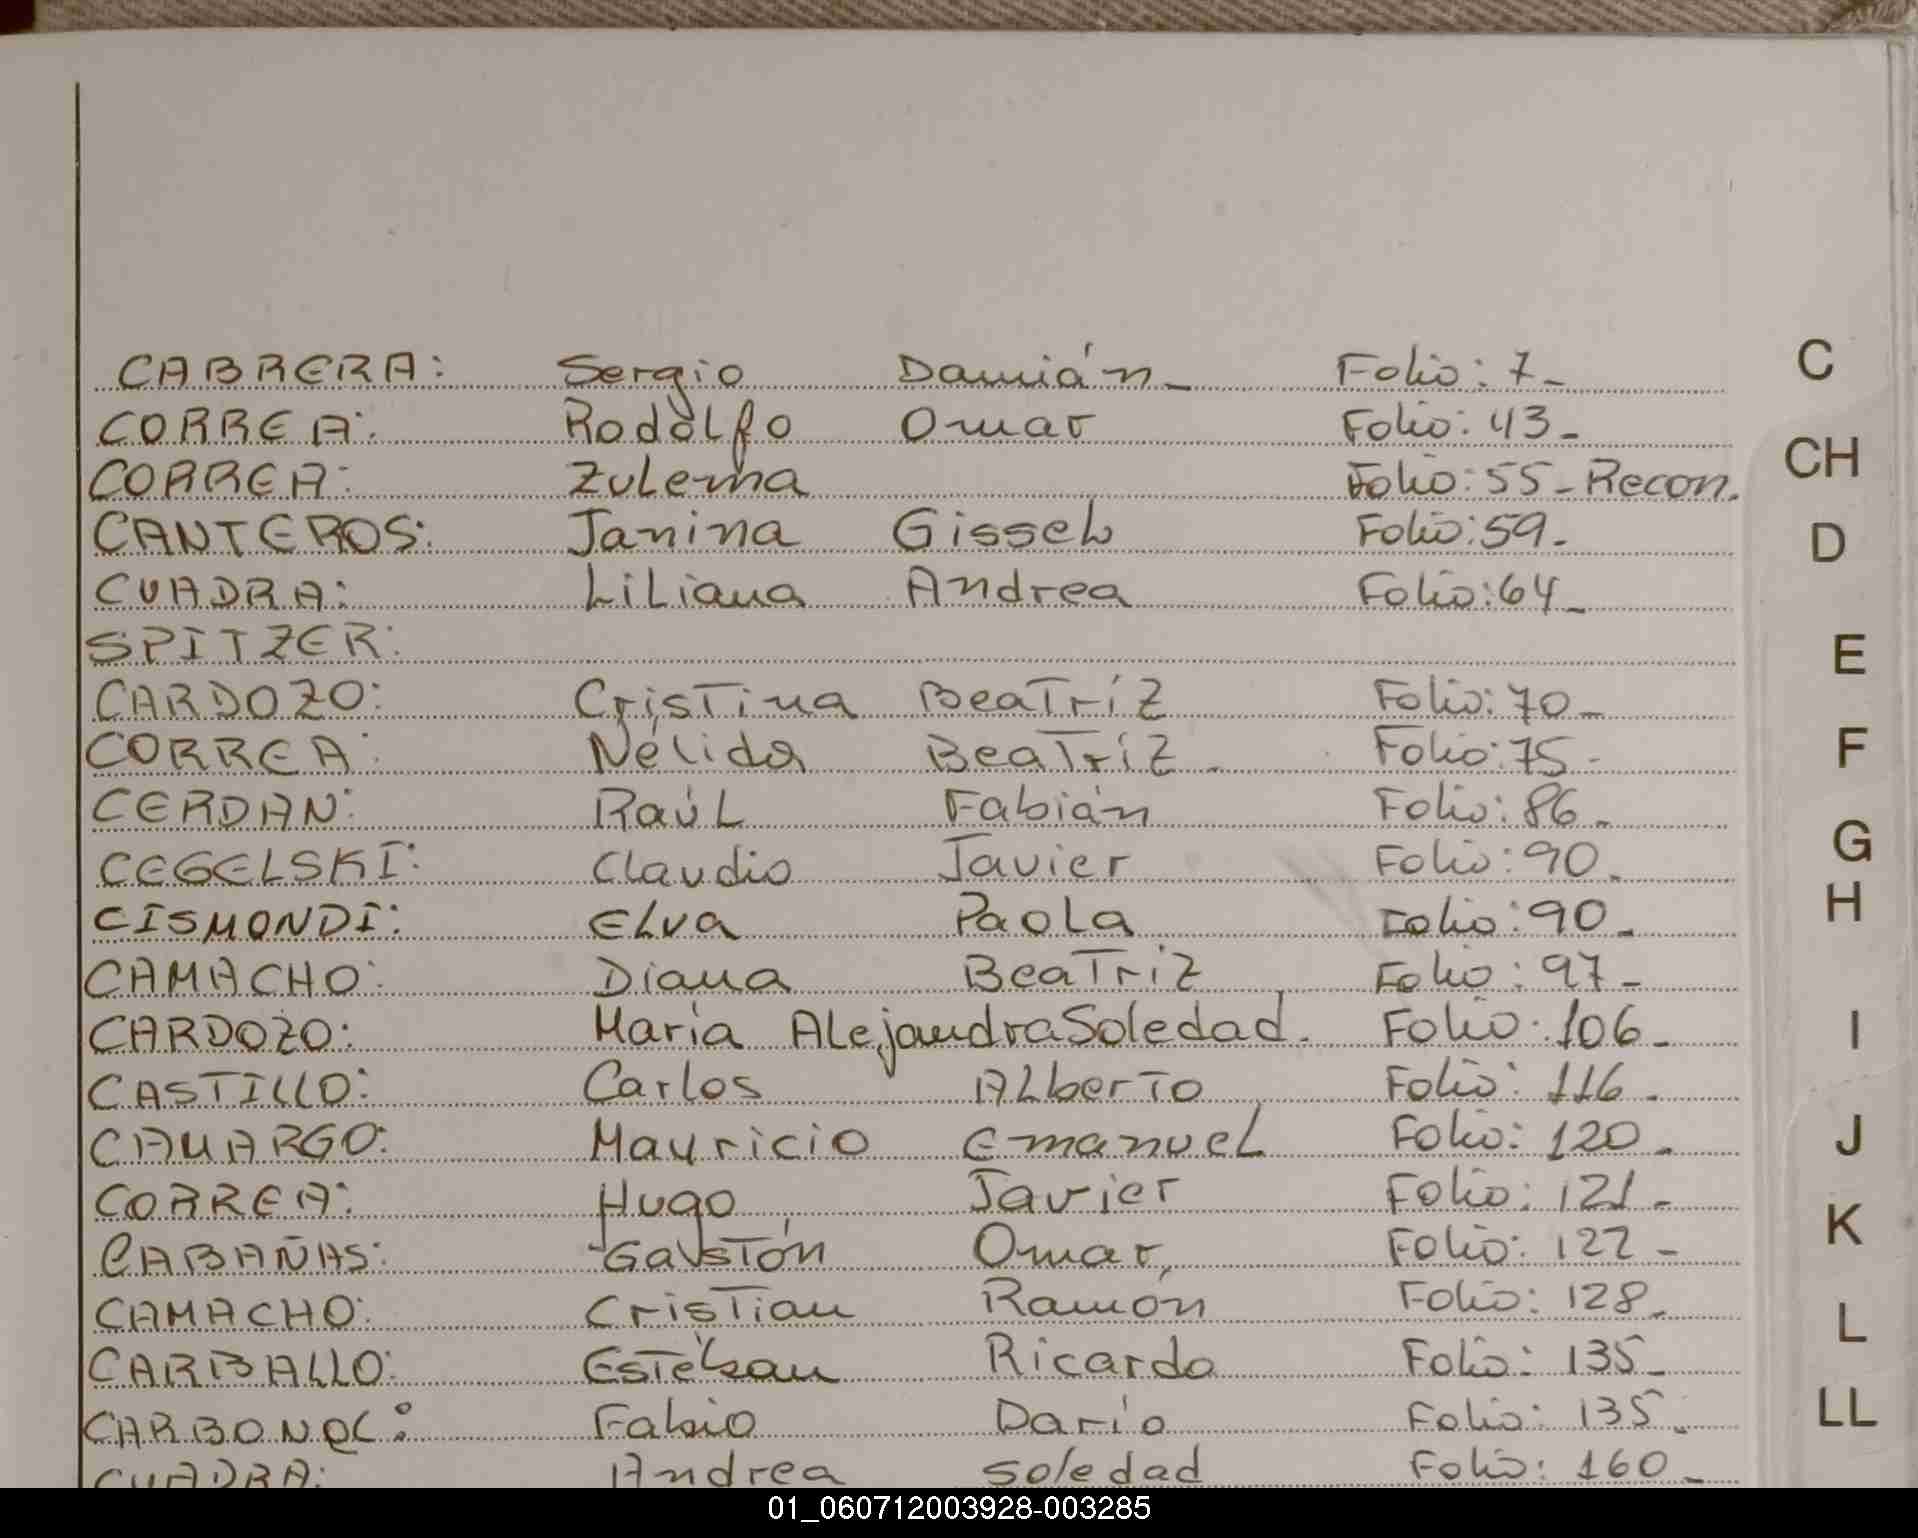 CABRERA: Sergio Damián_ Folio: 7_
CORREA: Rodolfo Omar Folio: 43_
CORREA: Zulema Folio: 55_ Recon.
CANTEROS: Janina Gissel Folio: 59_
CUADRA: Liliana Andrea Folio: 64_
SPITZER:
CARDOZO: Cristina Beatríz Folio: 70_
CORREA: Nélida Beatríz_ Folio: 75_
CERDAN: Raúl Fabián Folio: 86_
CEGELSKI: Claudio Javier Folio: 90_
CISMONDI: Elva Paola Folio: 90_
CAMACHO: Diana Beatriz Folio: 97_
CARDOZO: María Alejandra Soledad. Folio: 106_
CASTILLO: Carlos Alberto Folio: 116_
CAMARGO: Mauricio Emanuel Folio: 120_
CORREA: Hugo Javier Folio: 121_
CABAÑAS: Gastón Omar Folio: 122_
CAMACHO: Cristian Ramón Folio: 128_
CARBALLO: Estéban Ricardo Folio: 135_
Fabio Darío Folio: 135_
CUADRA: Andrea Soledad Folio: 160_
C
CH
D
E
F
G
H
I
J
K
L
LL
01_060712003928-003285